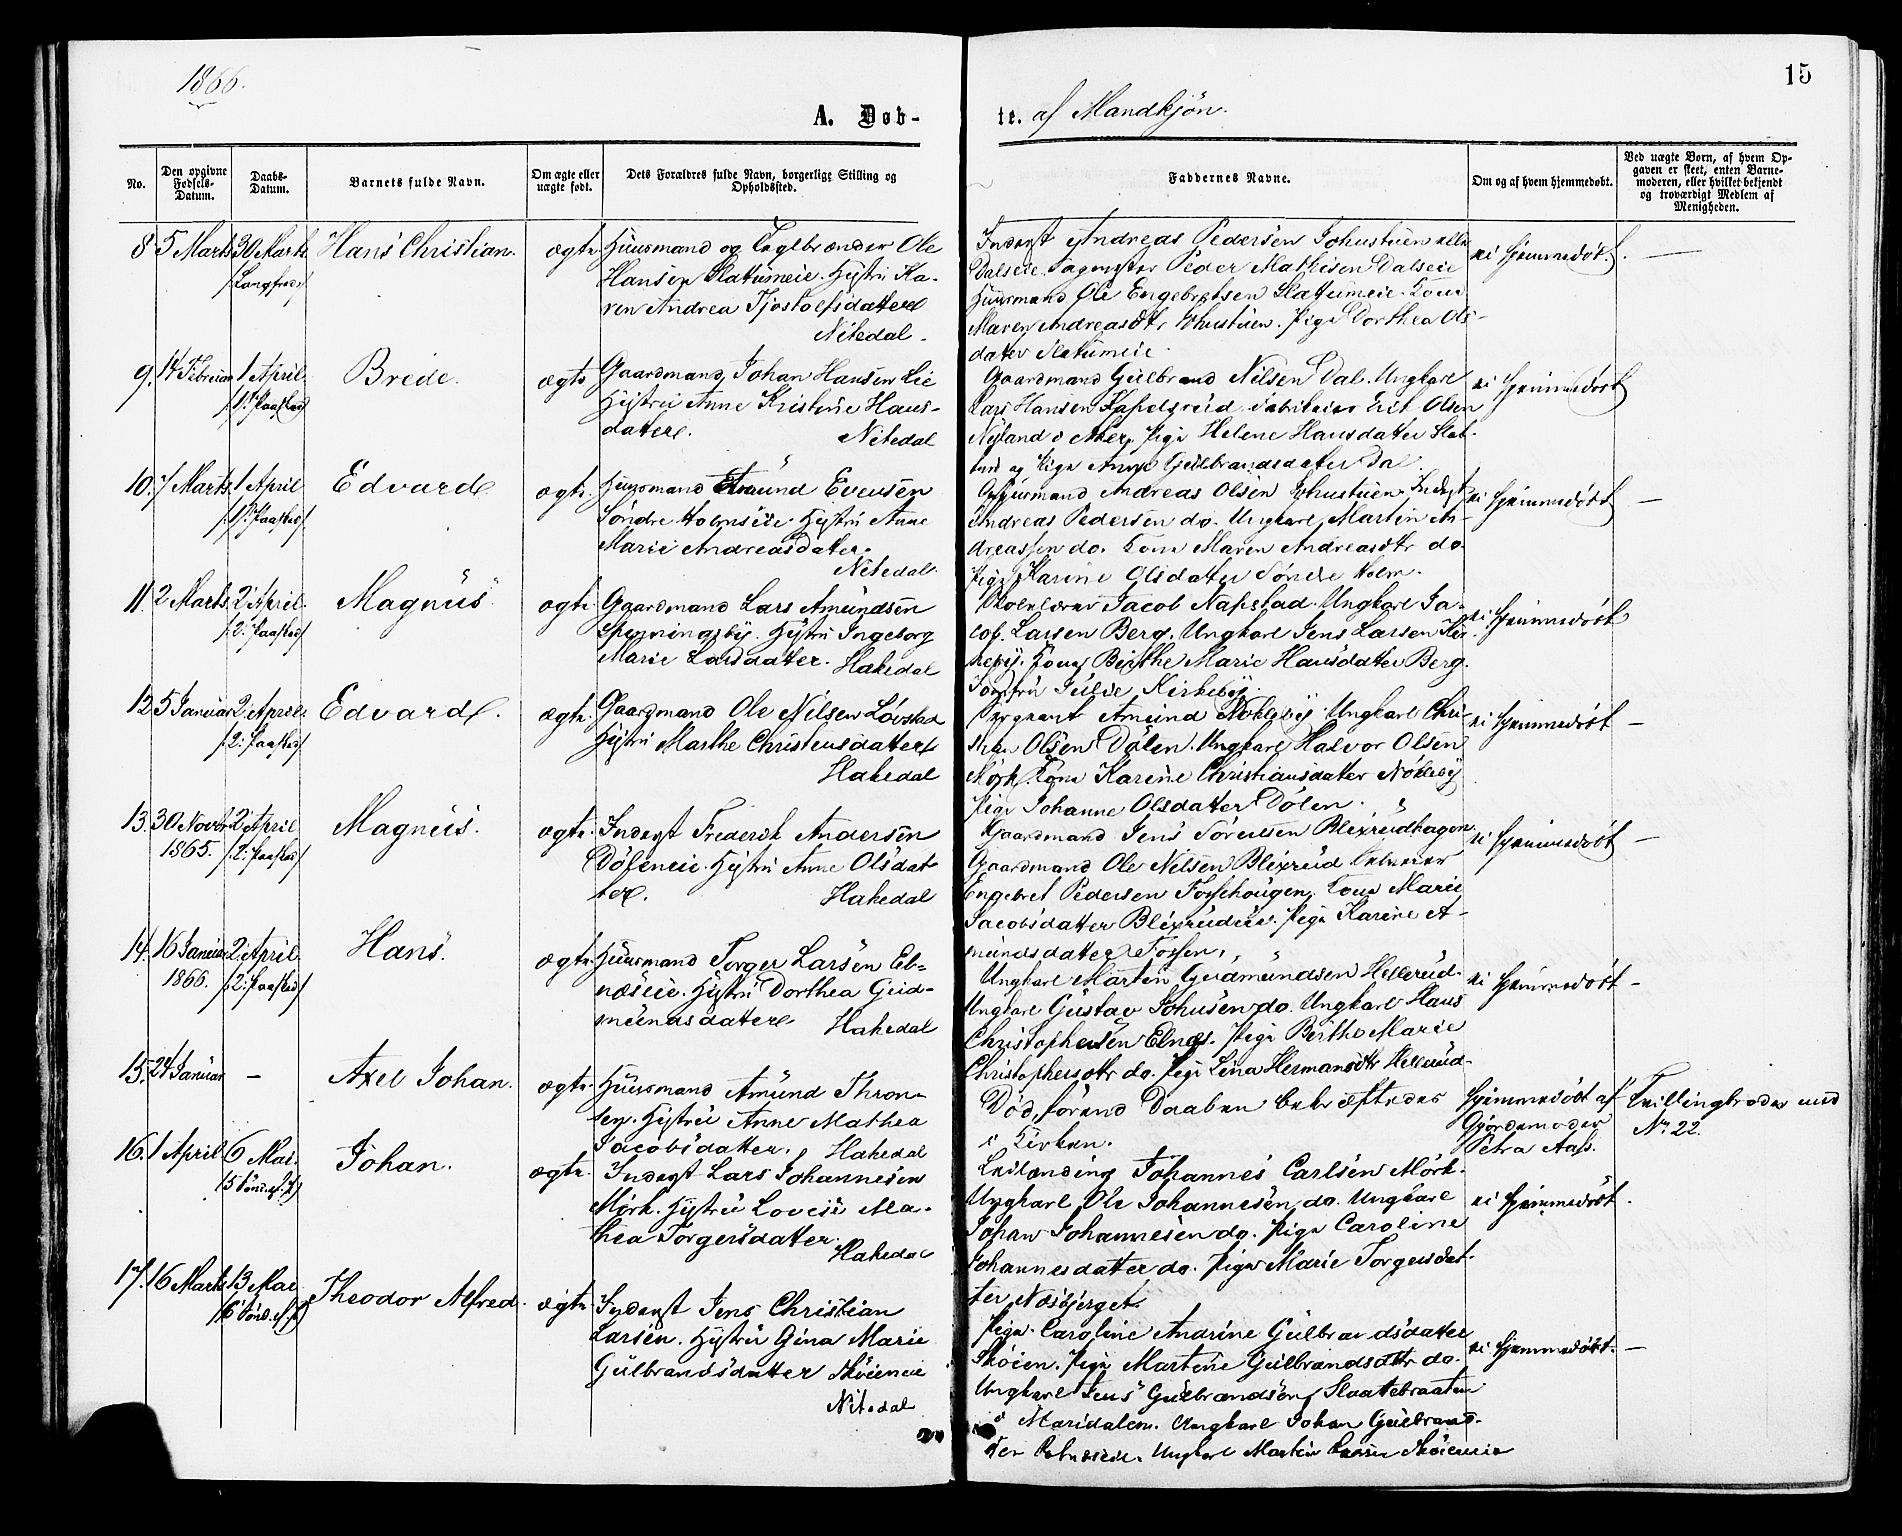 1866.
15
A. Døb-
te. af Mandkjön.
No.
Den opgivne Fødsels-Datum.
Daabs-Datum.
Barnets fulde Navn.
Om ægte eller uægte født.
Dets Forældres fulde Navn, borgerlige Stilling og Opholdssted.
Faddernes Navne.
Om og af hvem hjemmedøbt.
Ved uægte Børn, af hvem Op-
gaven er skeet, enten Barne-
moderen, eller hvilket bekjendt
og troværdigt Medlem af
Menigheden.
8 5 Marts 30 Marts Hans Christian. ægte
/Langfred:/
Huusmand og Teglbrænder Ole
Hansen Slatumeie. Hustru Ka-
ren Andrea Tjostolfsdatter
Nitedal.
Inderst Andreas Pedersen Johnstuen
Dalseie. Peder Mathisen Dalseie
Huusmand Ole Engebretsen Slatumeie. Kone
Maren Andreasdtr Johnstuen. Pige Dorthea Ols-
datter Slatumeie.
ei hjemmedøbt. —
9. 14 Februar 1 April Brede. ægte
/1: Paasked/
Gaardmand Johan Hansen Lie
Hustru Anne Kristine Hans-
datter.
Nitedal
Gaardmand Gulbrand Nilsen Dal. Ungkarl
Lars Hansen Erik Olsen
Nyland i Aker. Pige Helene Hansdatter Slat-
tum og Pige Anne Gulbrandsdatter Dal.
ei hjemmedøbt
10. 7 Marts. 1 April Edvard. ægte.
/1: Paasked/
Huusmand Amund Evensen
Söndre Holmseie. Hustru Anne
Marie Andreasdatter.
Nitedal.
Huusmand Andreas Olsen Johnstuen. Inderst
Andreas Pedersen do. Ungkarl Martin An-
dreassen do. Kone Maren Andreasdtr do.
Pige Karine Olsdatter Söndre Holm.
ei hjemmedøbt —
11. 2 Marts. 2 April. Magnus. ægte
/2: Paasked/
Gaardmand Lars Amundsen
Spenningsby. Hustru Ingeborg
Marie Larsdatter. Hakedal
Skolelærer Jacob Nafstad. Ungkarl Ja-
cob Larsen Berg. Ungkarl Jens Larsen Kir-
keby. Kone Birthe Marie Hansdatter Berg.
Jomfru Julie Kirkeby.
ei hjemmedøbt
12. 5 Januar 2 April Edvard. ægte.
/2: Paasked/
Gaardmand Ole Nilsen Løvstad
Hustru Marthe Christensdatter
Hakedal
Sergeant Amund Nökleby. Ungkarl Chri-
stian Olsen Dölen. Ungkarl Halvor Olsen
Mork. Kone Karine Christiansdatter Nökleby
Pige Johanne Olsdatter Dölen.
ei hjemmedøbt —
13. 30 Novbr 2 April Magnus. ægte.
1865. /2: Paasked/
Inderst Frederik Andersen
Döleneie. Hustru Anne Olsdat-
ter. Hakedal
Gaardmand Jens Sörensen Blixrudhagen
Gaardmand Ole Nilsen Blixrud
Engebret Pedersen Fossehougen. Kone Marie
Jacobsdatter Blixrudeie. Pige Karine A-
mundsdatter Fossen.
ei hjemmedøbt —
14. 16 Januar 2 April. Hans. ægte.
1866. /2: Paasked/
Huusmand Torger Larsen El-
næseie. Hustru Dorthea Gud-
mundsdatter Hakedal
Ungkarl Martin Gudmundsen Hellerud.
Ungkarl Gustav Johnsen do. Ungkarl Hans
Christophersen Elnæs. Pige Berthe Marie
Christophersdtr do. Pige Lina Hermansdtr Hellerud.
ei hjemmedøbt —
15. 24 Januar — Axel Johan. ægte.
Huusmand Amund Thron-
sen. Hustru Anne Mathea
Jacobsdatter. Hakedal
Död, förend Daaben bekræftedes
i Kirken.
Hjemmedøbt af
Gjordemoder
Petra Aas.
Tvillingbroder med
No 22.
16. 1 April 6 Mai. Johan. ægte.
Inderst Lars Johannesen
Mörk. Hustru Lovise Ma-
thea Torgersdatter.
Hakedal
Leilænding Johannes Carlsen Mörk.
Ungkarl Ole Johannesen do. Ungkarl
Johan Johannesen do. Pige Caroline
Johannesdatter do. Pige Marie Torgersdat-
ter Næsbjerget.
ei hjemmedøbt.
17. 16 Marts 13 Mai Theodor Alfred. ægte
Inderst Jens Christian
Larsen. Hustru Gina Marie
Gulbrandsdatter Skøieneie
Nitedal
Pige Caroline Andrine Gulbrandsdatter
Skøien. Pige Martine Gulbrandsdtr do.
Ungkarl Jens Gulbrandsen Slaatebraaten
i Maridalen. Ungkarl Johan Gulbrand-
sen Ungkarl Martin Larsen Skøieneie
ei hjemmedøbt. —